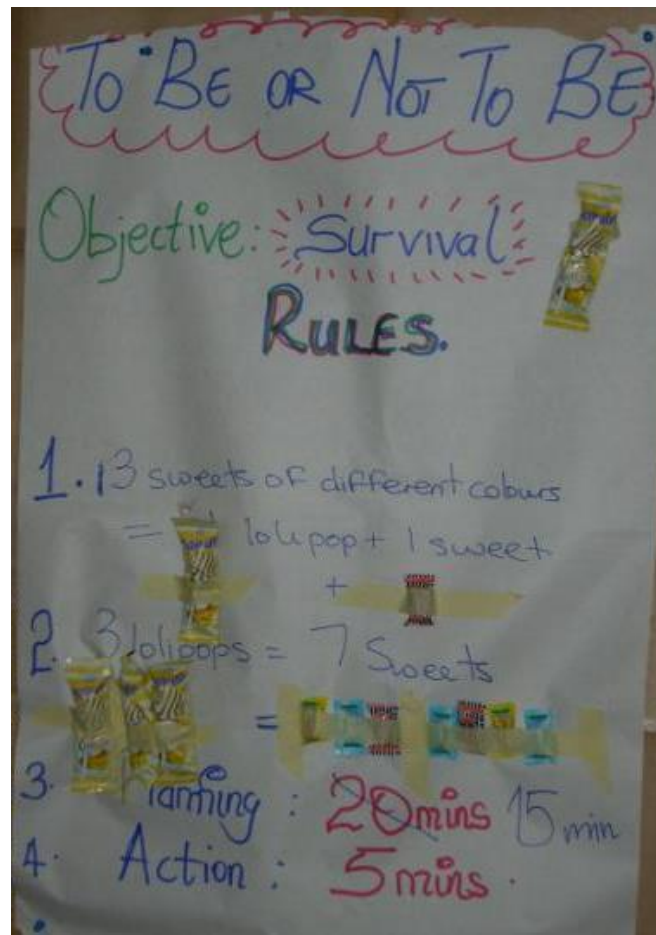 TO BE OR NOT TO BE
Objective: Survival
RULES.
1. 3 sweets of different colours
= lolipop + 1 sweet
+
2. 3 lolipops = 7 Sweets
=
3. : 20mins 15 min
4. Action : 5 mins.